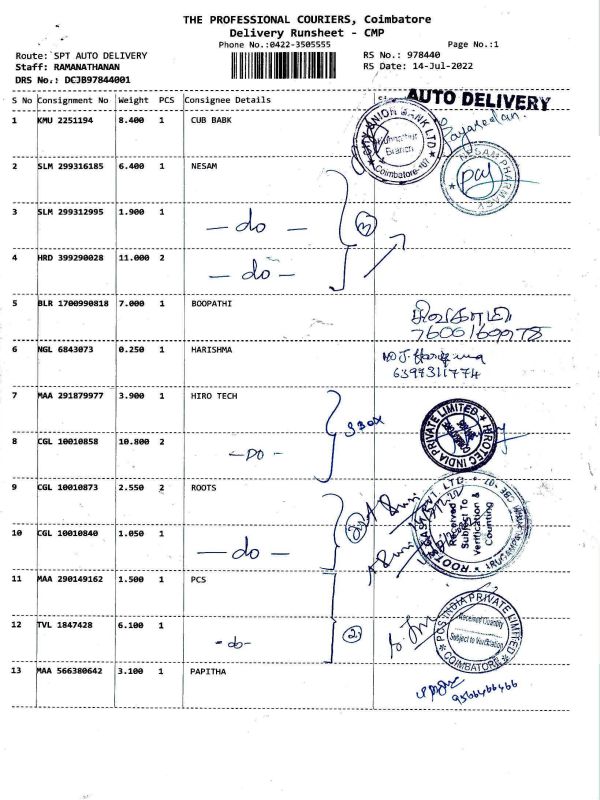 THE PROFESSIONAL COURIERS, Coimbatore
Delivery Runsheet - CMP
Phone No.:0422-3505555 Page No.:1
Route: SPT AUTO DELIVERY RS No.: 978440
Staff: RAMANATHANAN RS Date: 14-Jul-2022
DRS No.: DCJB97844001
AUTO DELIVERY
S No Consignment No Weight PCS Consignee Details
1 KMU 2251194 8.400 1 CUB BABK
CITY UNION BANK LTD. Branch Coimbatore
2 SLM 299316185 6.400 1 NESAM
NESAM PHARMACY
3 SLM 299312995 1.900 1 - do - 3
4 HRD 399290028 11.000 2 - do -
5 BLR 1700990818 7.000 1 BOOPATHI
6 NGL 6843073 0.250 1 HARISHMA
6399311774
7 MAA 291879977 3.900 1 HIRO TECH 3 BOX
HEROTEC INDIA PRIVATE LIMITED
8 CGL 10010858 10.800 2 - DO -
9 CGL 10010873 2.550 2 ROOTS 2
Received Subject To Verification & Counting
10 CGL 10010840 1.050 1 - do -
11 MAA 290149162 1.500 1 PCS
12 TVL 1847428 6.100 1 - do - 2
INDIA PRIVATE LIMITED Received Quantity Subject to Verification COIMBATORE
13 MAA 566380642 3.100 1 PAPITHA
9566466466